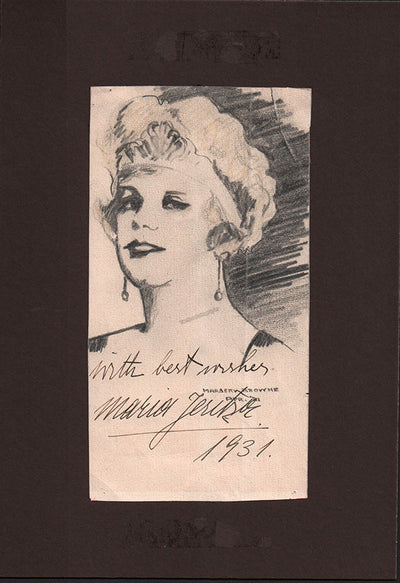 with best wishes
MARBERY BROWNE
Maria Jeritza
1931.